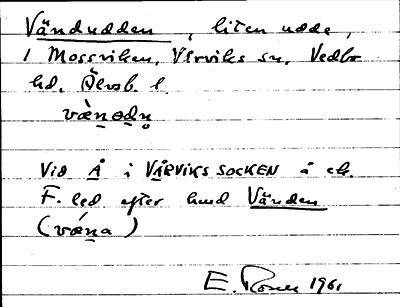 Vändudden, liten udde,
i Mossviken, Vårviks sn, Vedbo
hd, Älvsb. l.
Vid Å i VÅRVIKS SOCKEN å ek.
F. led efter hund Vänden
E. 1961